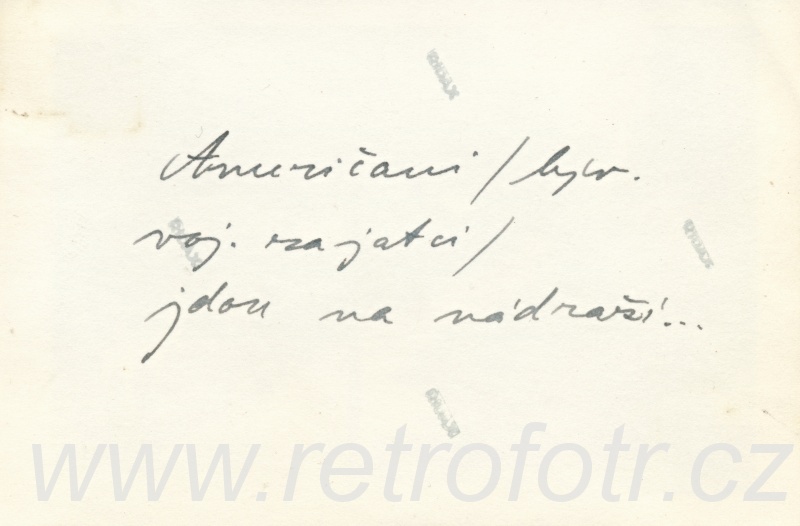 Američani / býv.
voj. zajatci /
jdou na nádraží...
www.retrofotr.cz